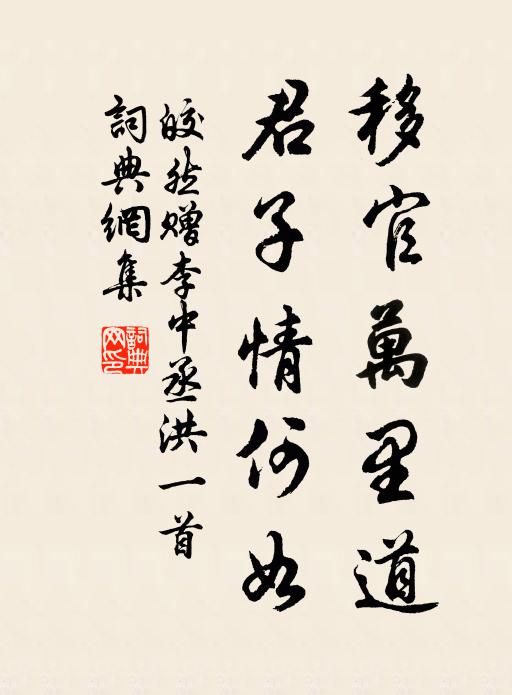 移官萬里道
君子情何如
皎然贈李中丞洪一首
詞典網集
詞典網印